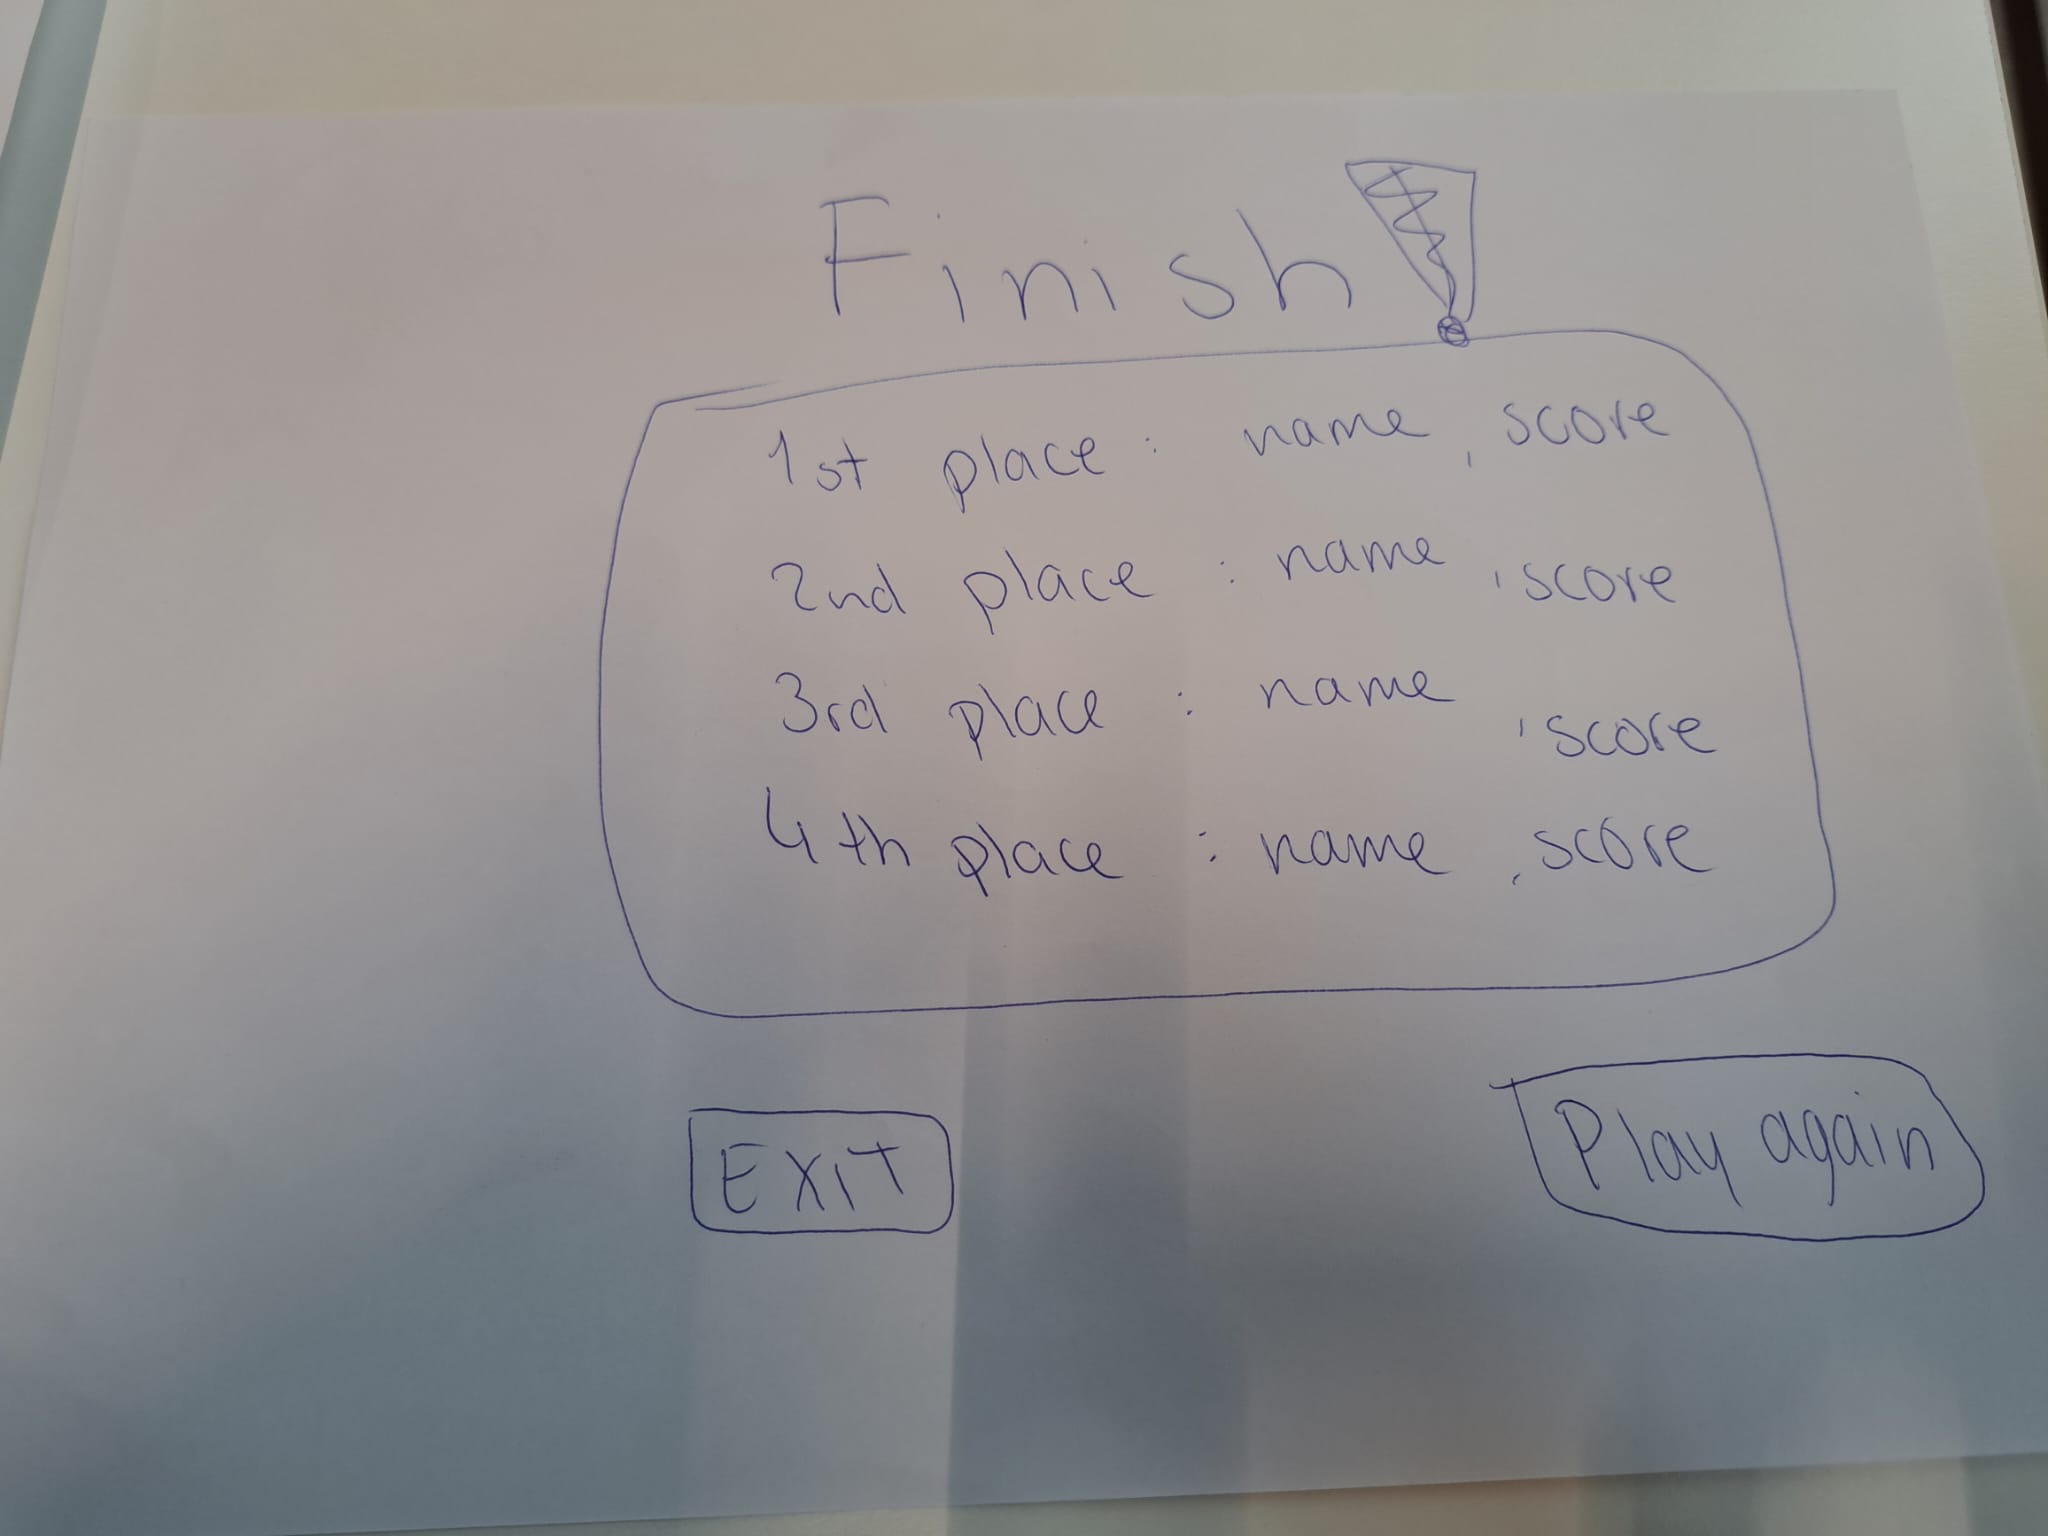 Finish!
1st place : name, score
2nd place : name, score
3rd place : name, score
4th place : name, score
EXIT
Play again